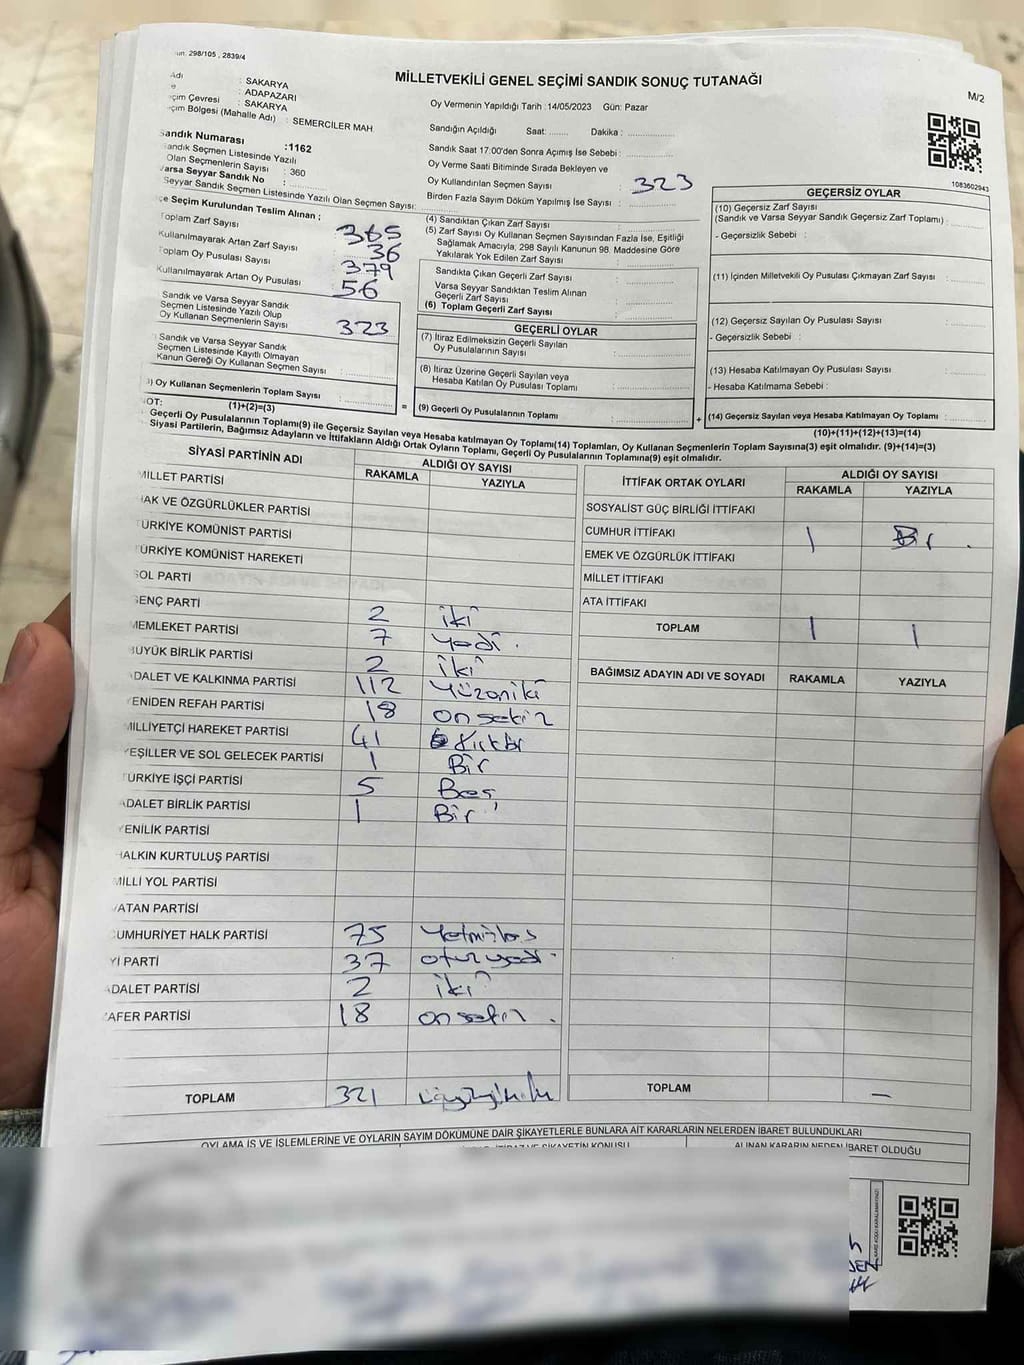 un. 298/105 , 2839/4
MİLLETVEKİLİ GENEL SEÇİMİ SANDIK SONUÇ TUTANAĞI
M/2
Adı : SAKARYA
: ADAPAZARI
çim Çevresi : SAKARYA
çim Bölgesi (Mahalle Adı) : SEMERCİLER MAH.
Oy Vermenin Yapıldığı Tarih :14/05/2023 Gün: Pazar
Sandığın Açıldığı Saat: ........ Dakika : ............
Sandık Saat 17.00'den Sonra Açımış İse Sebebi : ............
Oy Verme Saati Bitiminde Sırada Bekleyen ve
Oy Kullandırılan Seçmen Sayısı : 323
Birden Fazla Sayım Döküm Yapılmış İse Sayısı : ............
1083602943
Sandık Numarası :1162
andık Seçmen Listesinde Yazılı
Olan Seçmenlerin Sayısı : 360
Varsa Seyyar Sandık No : ............
Seyyar Sandık Seçmen Listesinde Yazılı Olan Seçmen Sayısı: ............
çe Seçim Kurulundan Teslim Alınan ;
Toplam Zarf Sayısı : 365
Kullanılmayarak Artan Zarf Sayısı 36
Toplam Oy Pusulası Sayısı 379
Kullanılmayarak Artan Oy Pusulası 56
Sandık ve Varsa Seyyar Sandık
Seçmen Listesinde Yazılı Olup
Oy Kullanan Seçmenlerin Sayısı 323
Sandık ve Varsa Seyyar Sandık
Seçmen Listesinde Kayıtlı Olmayan
Kanun Gereği Oy Kullanan Seçmen Sayısı : ............
) Oy Kullanan Seçmenlerin Toplam Sayısı : ............
(1)+(2)=(3)
(4) Sandıktan Çıkan Zarf Sayısı : ............
(5) Zarf Sayısı Oy Kullanan Seçmen Sayısından Fazla İse, Eşitliği
Sağlamak Amacıyla; 298 Sayılı Kanunun 98. Maddesine Göre
Yakılarak Yok Edilen Zarf Sayısı : ............
Sandıkta Çıkan Geçerli Zarf Sayısı : ............
Varsa Seyyar Sandıktan Teslim Alınan
Geçerli Zarf Sayısı : ............
(6) Toplam Geçerli Zarf Sayısı : ............
GEÇERLİ OYLAR
(7) İtiraz Edilmeksizin Geçerli Sayılan
Oy Pusulalarının Sayısı : ............
(8) İtiraz Üzerine Geçerli Sayılan veya
Hesaba Katılan Oy Pusulası Toplamı : ............
= (9) Geçerli Oy Pusulalarının Toplamı : ............ +
GEÇERSİZ OYLAR
(10) Geçersiz Zarf Sayısı
(Sandık ve Varsa Seyyar Sandık Geçersiz Zarf Toplamı) : ............
- Geçersizlik Sebebi :
(11) İçinden Milletvekili Oy Pusulası Çıkmayan Zarf Sayısı : ............
(12) Geçersiz Sayılan Oy Pusulası Sayısı : ............
- Geçersizlik Sebebi :
(13) Hesaba Katılmayan Oy Pusulası Sayısı : ............
- Hesaba Katılmama Sebebi :
(14) Geçersiz Sayılan veya Hesaba Katılmayan Oy Toplamı : ............
(10)+(11)+(12)+(13)=(14)
OT:
Geçerli Oy Pusulalarının Toplamı(9) ile Geçersiz Sayılan veya Hesaba katılmayan Oy Toplamı(14) Toplamları, Oy Kullanan Seçmenlerin Toplam Sayısına(3) eşit olmalıdır. (9)+(14)=(3)
Siyasi Partilerin, Bağımsız Adayların ve İttifakların Aldığı Ortak Oyların Toplamı, Geçerli Oy Pusulalarının Toplamına(9) eşit olmalıdır.
SİYASİ PARTİNİN ADI ALDIĞI OY SAYISI
RAKAMLA YAZIYLA
MİLLET PARTİSİ
HAK VE ÖZGÜRLÜKLER PARTİSİ
TÜRKİYE KOMÜNİST PARTİSİ
TÜRKİYE KOMÜNİST HAREKETİ
SOL PARTİ
GENÇ PARTİ 2 iki
MEMLEKET PARTİSİ 7 Yedi.
BÜYÜK BİRLİK PARTİSİ 2 iki
ADALET VE KALKINMA PARTİSİ 112 Yüzoniki
YENİDEN REFAH PARTİSİ 18 onsekiz
MİLLİYETÇİ HAREKET PARTİSİ 41 Kırkbir
YEŞİLLER VE SOL GELECEK PARTİSİ 1 Bir
TÜRKİYE İŞÇİ PARTİSİ 5 Beş
ADALET BİRLİK PARTİSİ 1 Bir
YENİLİK PARTİSİ
HALKIN KURTULUŞ PARTİSİ
MİLLİ YOL PARTİSİ
VATAN PARTİSİ
CUMHURİYET HALK PARTİSİ 75 Yetmişbeş
İYİ PARTİ 37 otuzyedi.
ADALET PARTİSİ 2 iki
ZAFER PARTİSİ 18 onsekiz.
TOPLAM 321
İTTİFAK ORTAK OYLARI ALDIĞI OY SAYISI
RAKAMLA YAZIYLA
SOSYALİST GÜÇ BİRLİĞİ İTTİFAKI
CUMHUR İTTİFAKI 1 Bir.
EMEK VE ÖZGÜRLÜK İTTİFAKI
MİLLET İTTİFAKI
ATA İTTİFAKI
TOPLAM 1 1
BAĞIMSIZ ADAYIN ADI VE SOYADI RAKAMLA YAZIYLA
TOPLAM —
OYLAMA İŞ VE İŞLEMLERİNE VE OYLARIN SAYIM DÖKÜMÜNE DAİR ŞİKAYETLERLE BUNLARA AİT KARARLARIN NELERDEN İBARET BULUNDUKLARI
İTİRAZ VE ŞİKAYETİN KONUSU ALINAN KARARIN NEDEN İBARET OLDUĞU